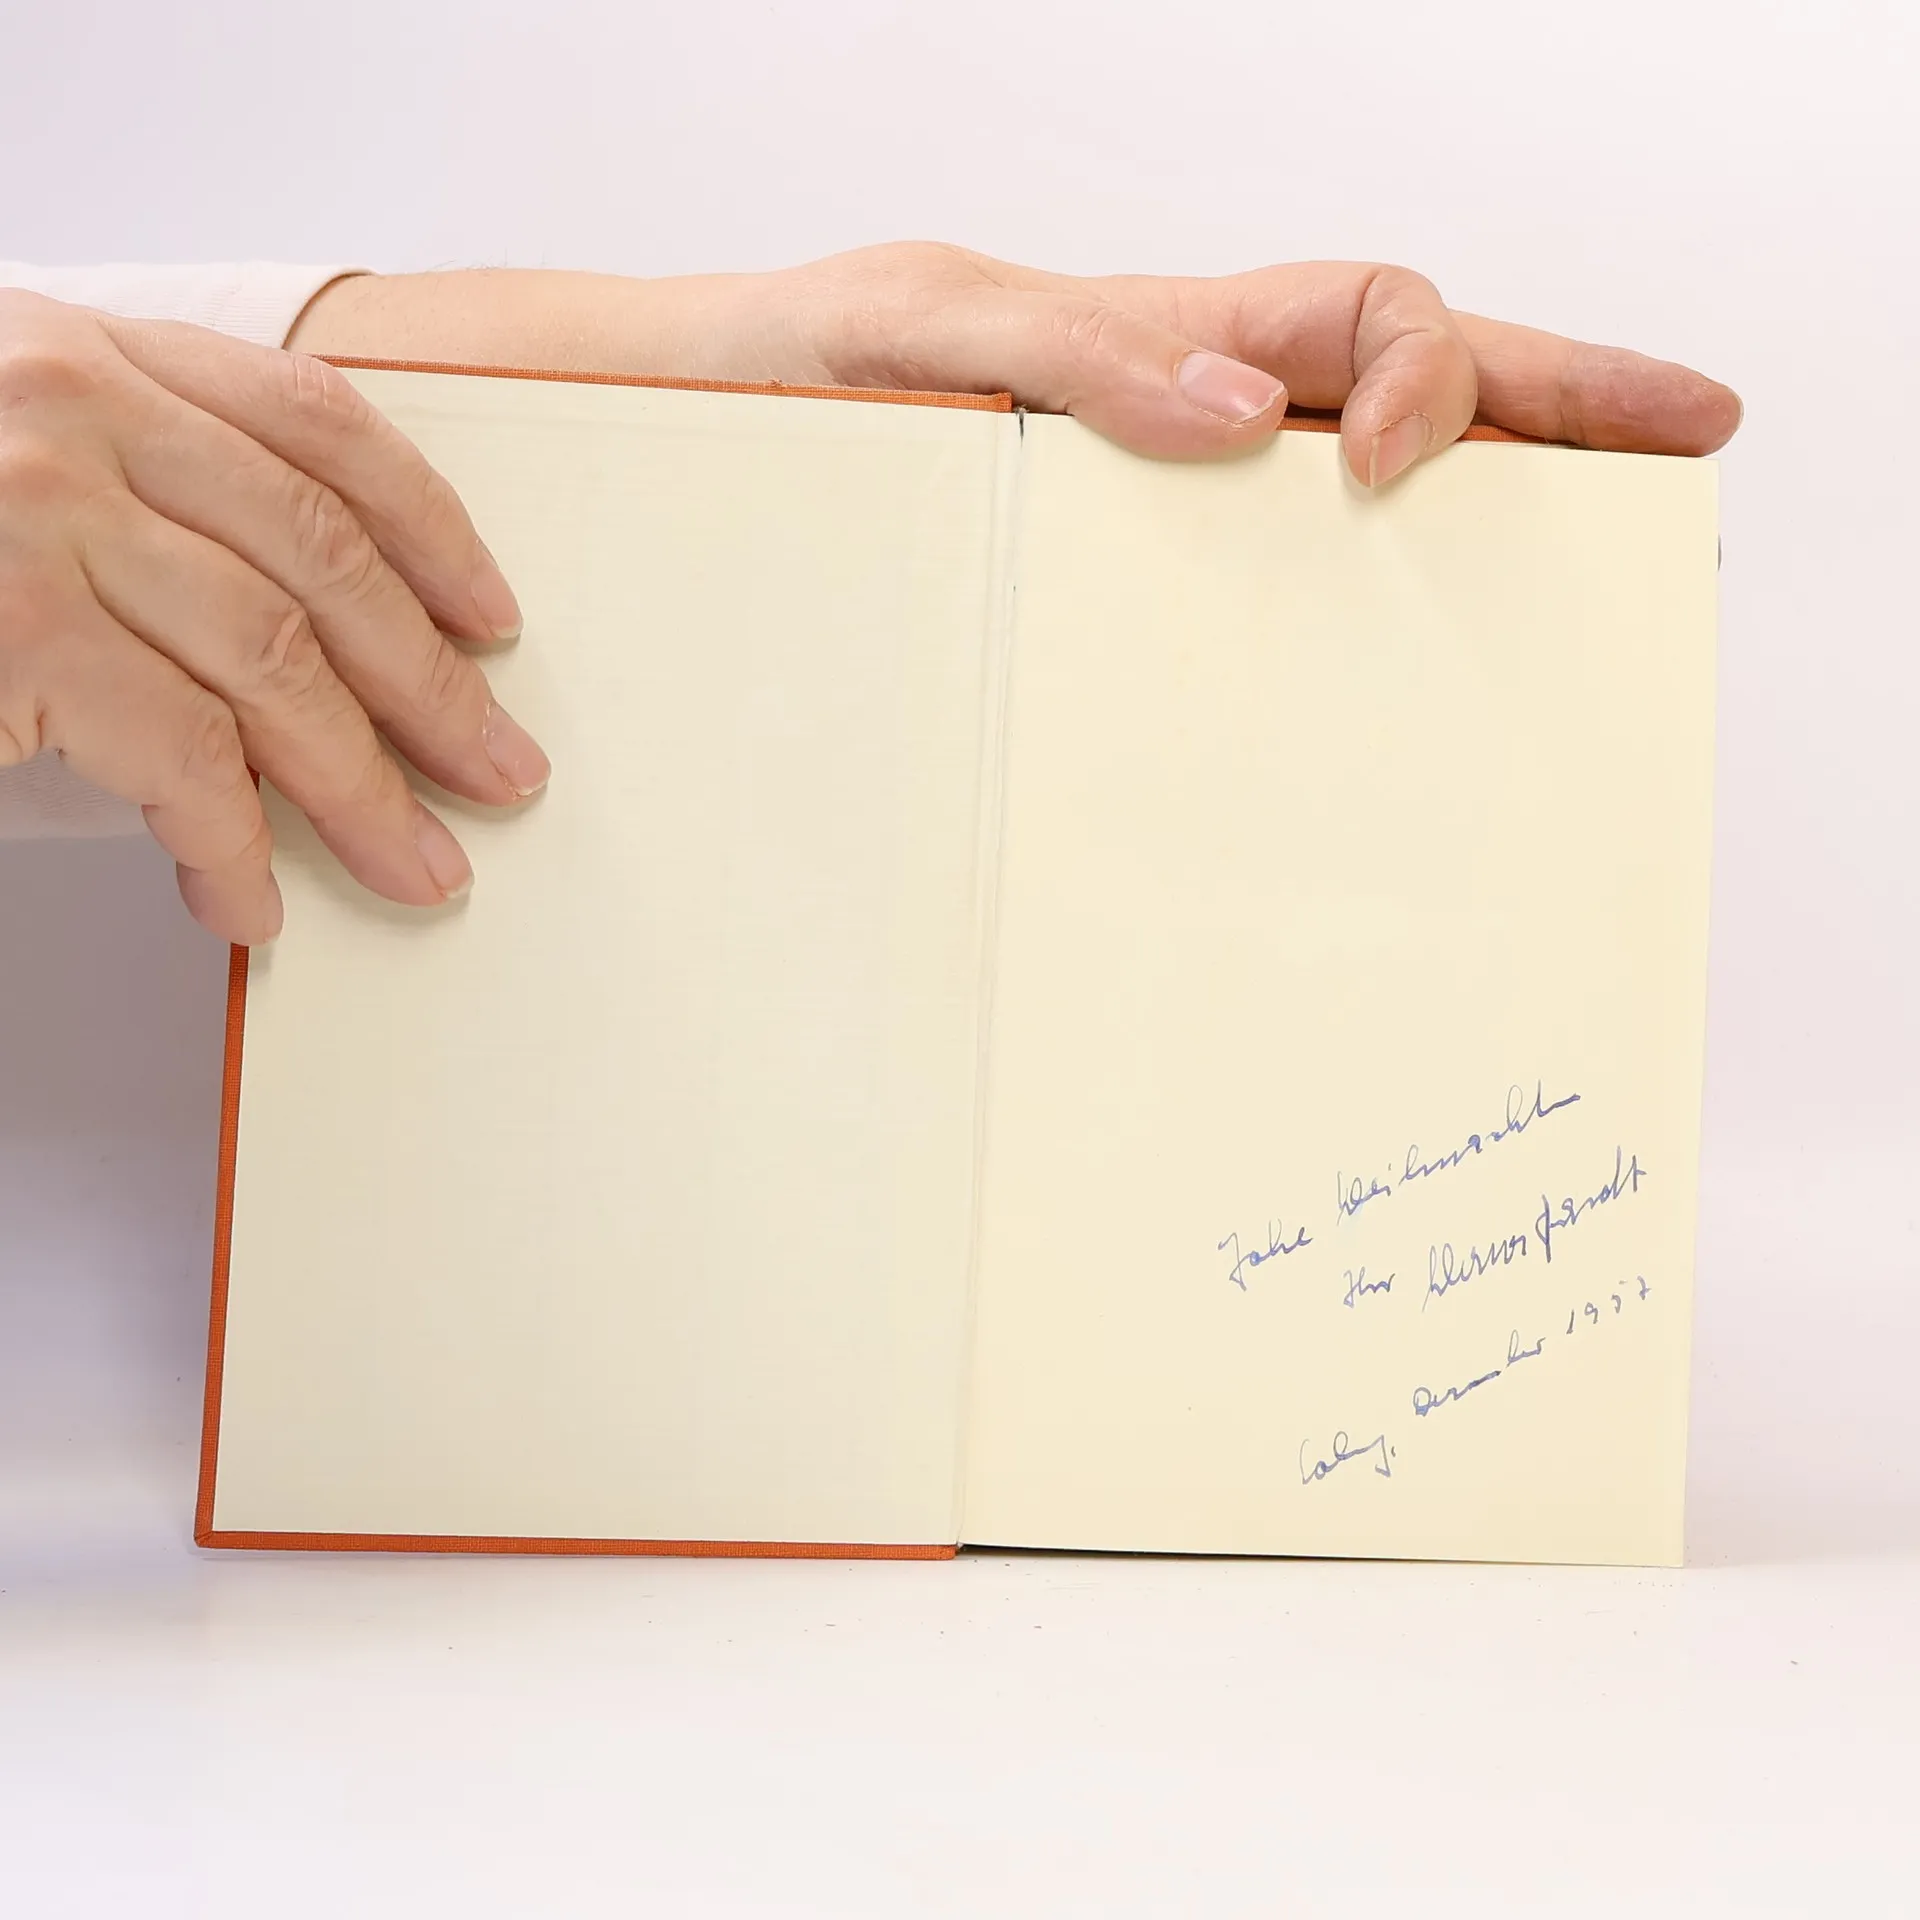 Frohe Weihnachten
Ihr
Coburg, Dezember 1957